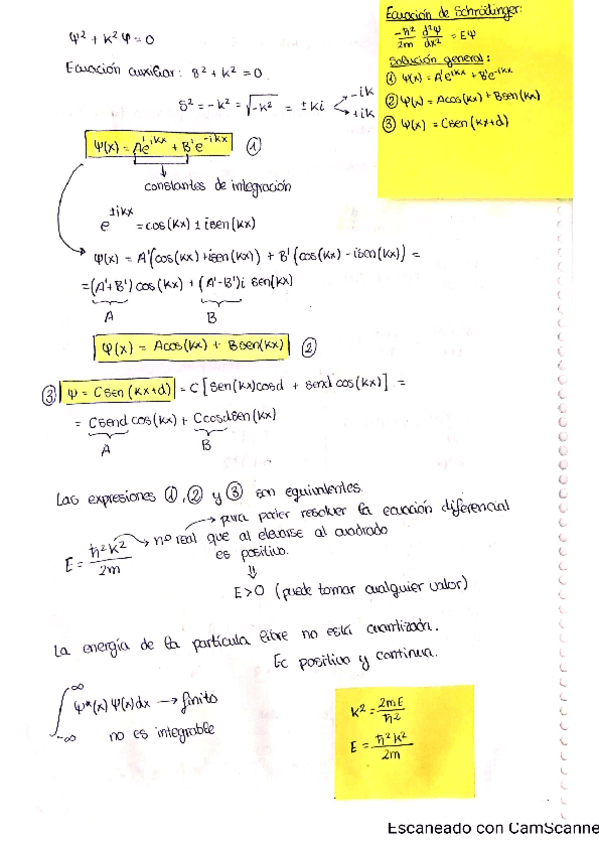 Ecuación de Schrödinger:
-ħ²/2m d²Ψ/dx² = EΨ
Solución general:
① Ψ(x) = A'e^ikx + B'e^-ikx
② Ψ(x) = Acos(kx) + Bsen(kx)
③ Ψ(x) = Csen(kx+d)
Ψ² + k²Ψ = 0
Ecuación auxiliar: s² + k² = 0
s² = -k² = √-k² = ± ki
-ik
+ik
Ψ(x) = A'e^ikx + B'e^-ikx ①
constantes de integración
e^±ikx = cos(kx) ± isen(kx)
Ψ(x) = A'(cos(kx) + isen(kx)) + B'(cos(kx) - isen(kx)) =
= (A'+B') cos(kx) + (A'-B')i sen(kx)
A B
Ψ(x) = Acos(kx) + Bsen(kx) ②
③ Ψ = Csen(kx+d) = C[sen(kx)cosd + send cos(kx)] =
= Csend cos(kx) + Ccosdsen(kx)
A B
Las expresiones ①, ② y ③ son equivalentes.
→ para poder resolver la ecuación diferencial
E = ħ²k²/2m → nº real que al elevarse al cuadrado
es positivo.
⇓
E>0 (puede tomar cualquier valor)
La energía de la partícula libre no está cuantizada.
Ec positiva y continua.
∫_-∞^∞ Ψ*(x)Ψ(x)dx → finito
no es integrable
k² = 2mE/ħ²
E = ħ²k²/2m
Escaneado con CamScanne